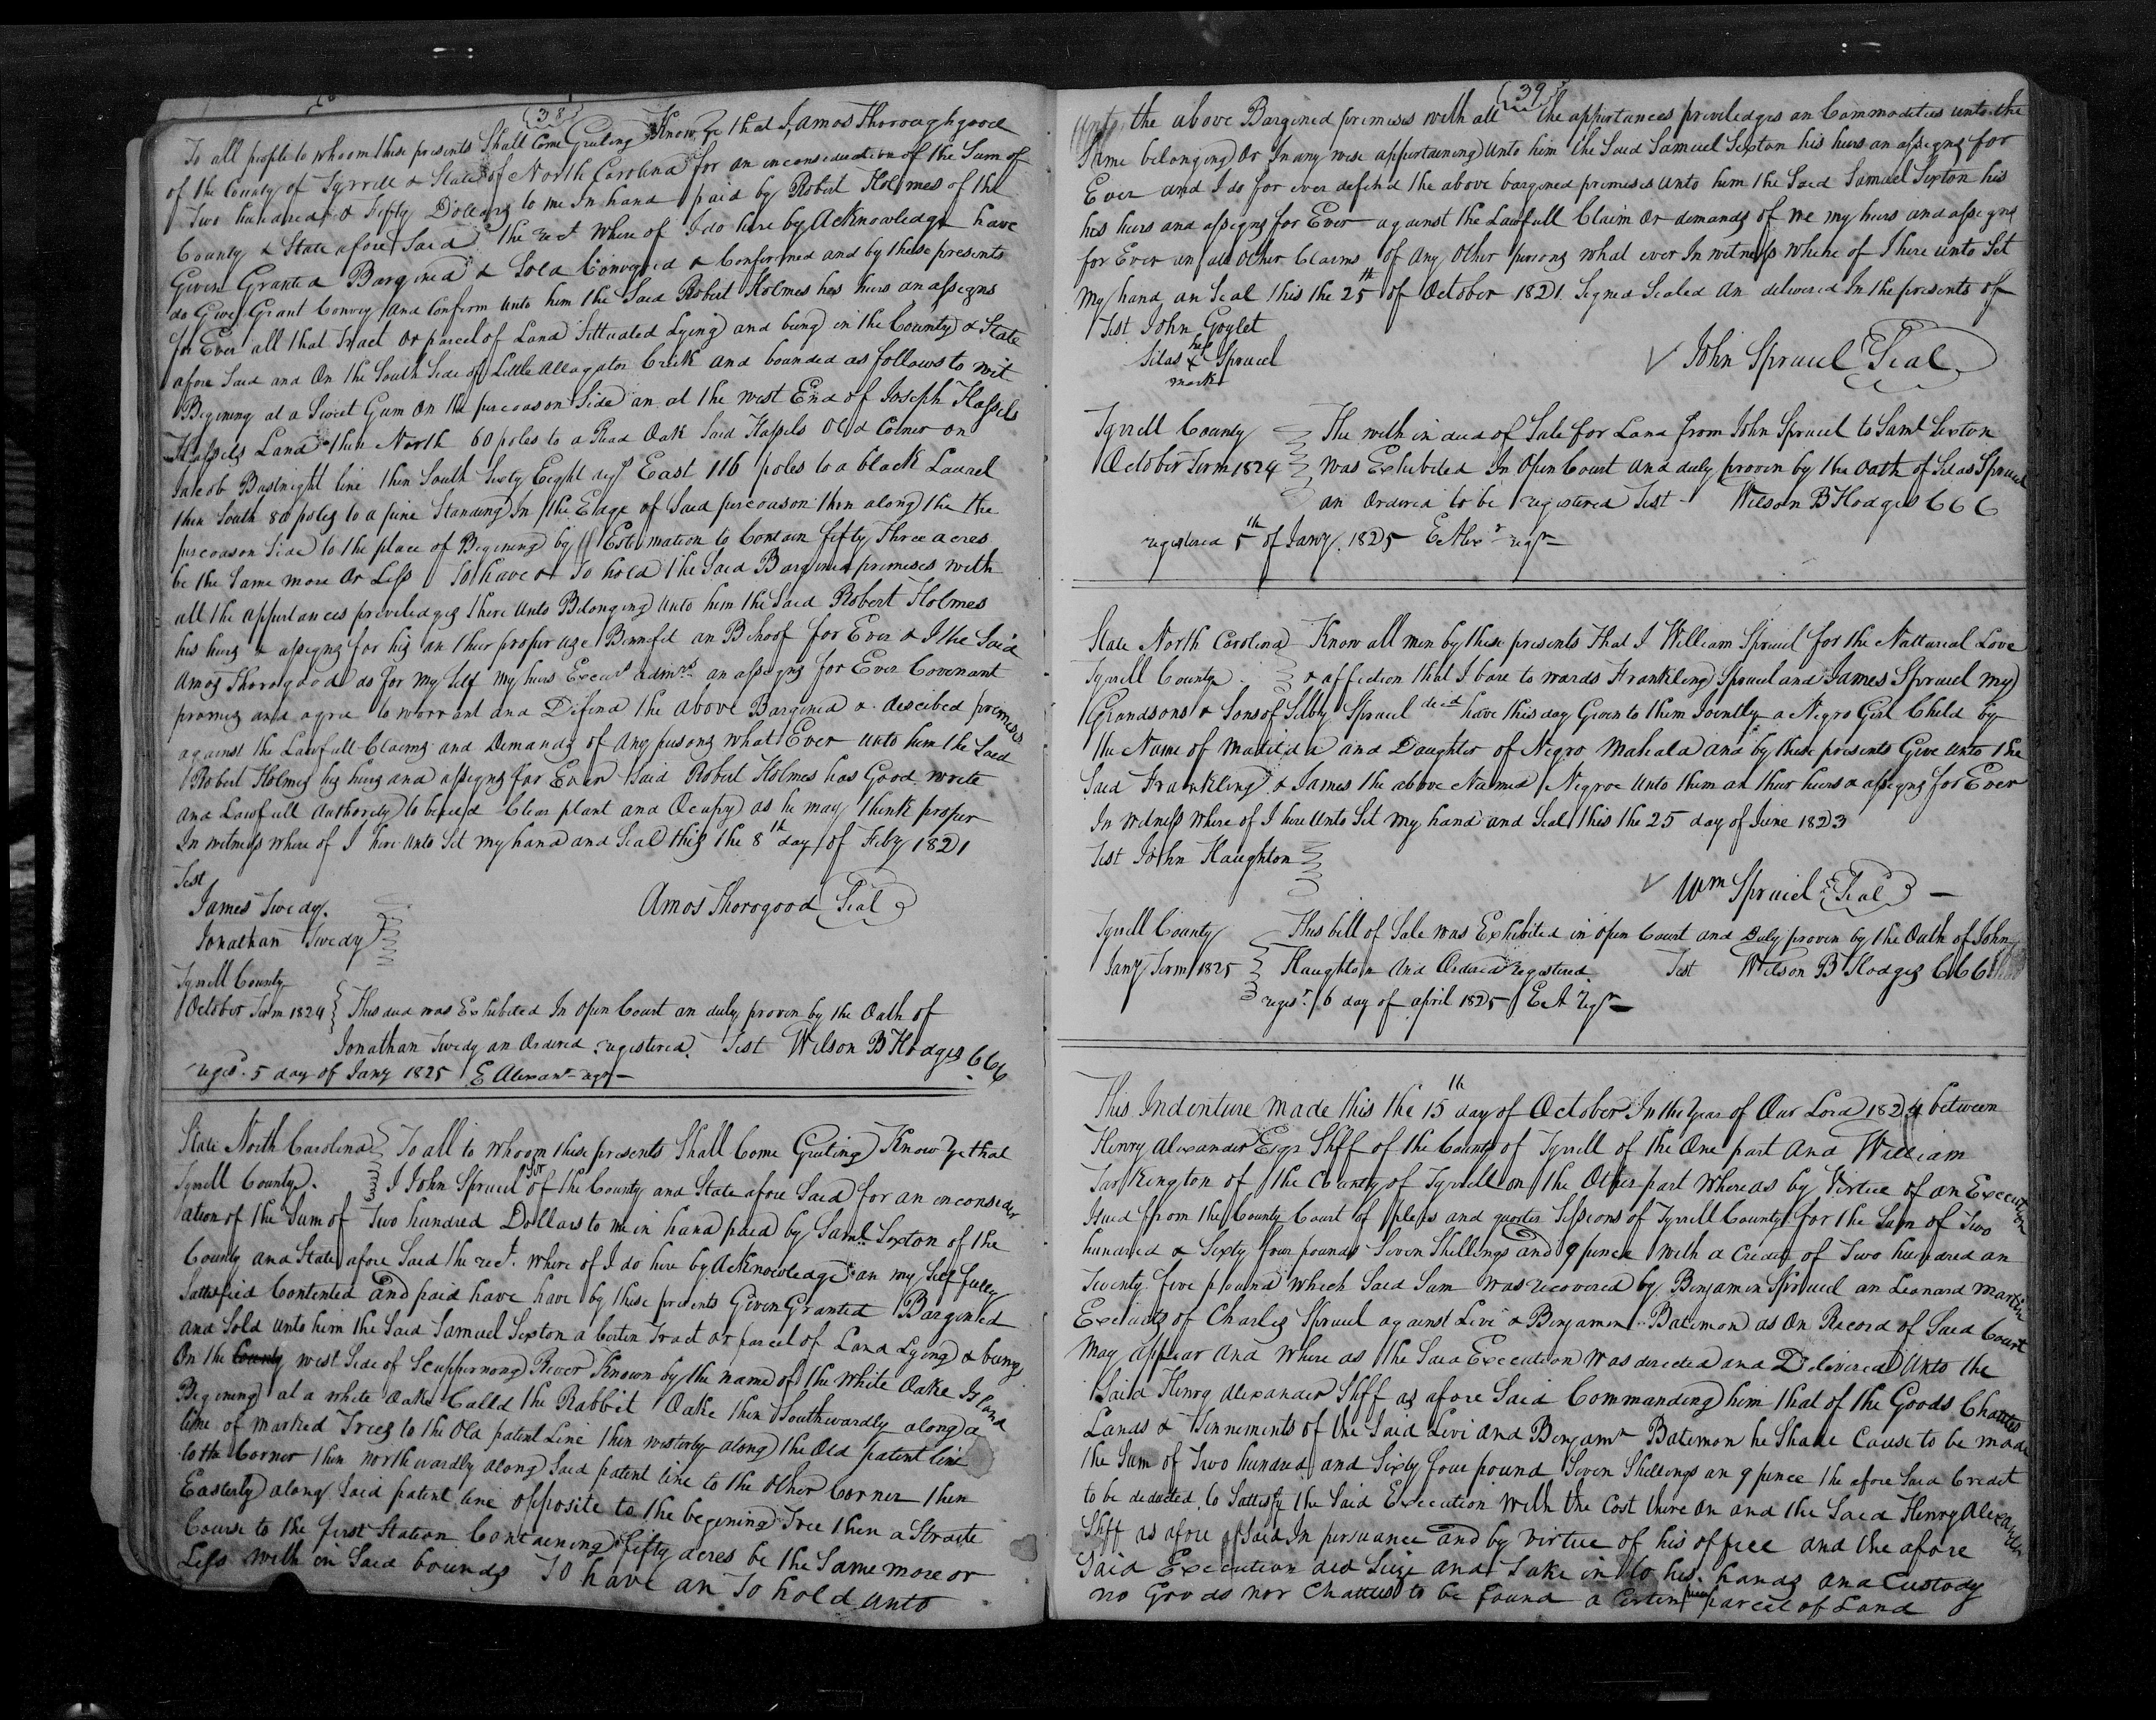 (38)
To all people to whoom these presents Shall Come Greeting Know Ye that I, Amos Thoroughgood
of the County of Tyrrell & State of North Carolina for an inconsideration of the Sum of
Two hundred & Fifty Dollars to me In hand paid by Robert Holmes of the
County & State afore Said the rect where of I do here by Acknowledge have
Given Granted Bargined & Sold Conveyed & Confirmed and by these presents
do Give Grant Convey And Confirm unto him the Said Robert Holmes hes heirs an assigns
for Ever all that Tract or parcel of Land Sittuated Lying and being in the County & State
afore Said and On the South Side of Little Allagator Creek and bounded as follows to wit
Begining at a Sweet Gum On the purcoason Side an at the west End of Joseph Hassels
Hassels Land then North 60 poles to a Read Oak Said Hassels Old Corner on
Jacob Basnight line then South Sixty Eight degs East 116 poles to a black Laurel
then South 80 poles to a pine Standing In the Edge of Said purcoason then along the the
purcoason Side to the place of Begining by Estimation to Contain fifty Three acres
be the Same more Or Less To have & To hold the Said Bargined premises with
all the appurtances preveledges there unto Belonging unto him the Said Robert Holmes
his heirs & assigns for his an their proper use Bennefit an Behoof for Ever & I the Said
Amos Thorogood do for my Self my heirs Execus admrs an assigns for Ever Covenant
promis and agree to worrant and Difend the above Bargined & descibed premises
against the Lawfull Claims and Demands of Any persons what Ever unto him the Said
Robert Holmes his heirs and assigns for Ever Said Robert Holmes has Good write
and Lawfull Authority to beild Clear plant and Ocupy as he may think proper
In witness where of I here unto Set my hand and Seal this the 8th day of Feby 1821
Test
James Twedy.
Amos Thorogood Seal
Jonathan Twedy
Tyrrell County
October Term 1824 This deed was Exhibited In Open Court an duly proven by the Oath of
Jonathan Twedy an Ordered registered. Test Wilson B Hodges CCC
regisd. 5 day of Jany 1825 E Alexanr regr
State North Carolina To all to whoom these presents Shall Come Greeting Know Ye that
Tyrrell County. I John Spruel Sor of the County and State afore Said for an inconseder
ation of the Sum of Two hundred Dollars to me in hand paid by Saml. Sexton of the
County and State afore Said the rect. where of I do here by Acknowledge an my Self fully
Sattesfied Contented and paid have have by these presents Given Granted Bargined
and Sold unto him the Said Samuel Sexton a Certen Tract or parcel of Land Lying & being
On the County west Side of Scuppernong River Known by the name of the White Oake Island
Begining at a white Oake Calld the Rabbit Oake then Southwardly along a
line of Marked Trees to the Old patent Line then westerly along the Old patent line
to the Corner then northwardly along Said patent line to the Other Corner then
Easterly along Said patent line opposite to the begining Tree then a Straite
Course to the first Station Containing fifty acres be the Same more or
Less with in Said bounds To have an To hold unto
(39)
Unto the above Bargined premises with all the appurtances preveledges an Commodities unto the
Same belonging Or In any wise appertaining unto him the Said Samuel Sexton his heirs an assigns for
Ever and I do for ever defend the above bargined premises unto him the Said Samuel Sexton his
his heirs and assigns for Ever against the Lawfull Claim Or demands of me my heirs and assigns
for Ever an all Other Claims of Any Other persons what ever In witness where of I here unto Set
my hand an Seal this the 25th of October 1821. Signed Sealed an delivered In the presents of
Test John Goylet
Silas his X mark Spruel
John Spruel Seal
Tyrrell County The with in deed of Sale for Land from John Spruel to Saml Sexton
October Term 1824 was Exhibited In Open Court and duly proven by the Oath of Silas Spruel
an Ordered to be registered Test Wilson B Hodges CCC
registered 5th of Jany. 1825 E Alexr regr
State North Carolina Know all men by these presents That I William Spruel for the Nattareal Love
Tyrrell County. & affection that I bare to wards Frankling Spruel and James Spruel my
Grandsons & Sons of Selby Spruel decd have this day Given to them Jointly a Negro Girl Child by
the Name of Matilda and Daughter of Negro Mahala and by these presents Give unto the
Said Frankling & James the above Named Negroe unto them an their heirs & assigns for Ever
In witness where of I here unto Set my hand and Seal this the 25 day of June 1823
Test John Haughton
Wm Spruel Seal
Tyrrell County This bill of Sale was Exhibited in Open Court and Duly proven by the Oath of John
Jany Term 1825 Haughton And Ordered registered Test Wilson B Hodges CCC
regisr. 6 day of april 1825 E A regr
This Indenture made this the 15th day of October In the Year of Our Lord 1824 between
Henry Alexander Esqr Shff of the County of Tyrrell of the One part And William
Tarkington of the County of Tyrrell on the Other part whereas by Virtue of an Execution
Isued from the County Court of pleas and quarter Sessions of Tyrrell County for the Sum of Two
hundred & Sixty four pounds Seven Shellings and 9 pence with a Credit of Two hundred an
Twenty five pound which Said Sum was recovered by Benjamin Spruel an Leonard Martin
Executs of Charles Spruel against Levi & Benjamin Batemon as On Record of Said Court
May appear And where as the Said Execution was derected and Delivered unto the
Said Henry Alexander Shff as afore Said Commanding him that of the Goods Chattles
Lands & Tennements of the Said Levi and Benjamn Batemon he Shall Cause to be made
the Sum of Two hundred and Sixty four pound Seven Shellings an 9 pence the afore Said Credit
to be deducted to Sattisfy the Said Execution with the Cost there on and the Said Henry Alexander
Shff as afore Said In persuance and by virtue of his office and the afore
Said Execution did Seize and Take in to his hands and Custody
no Goods nor Chattles to be found a Certen piece parcel of Land